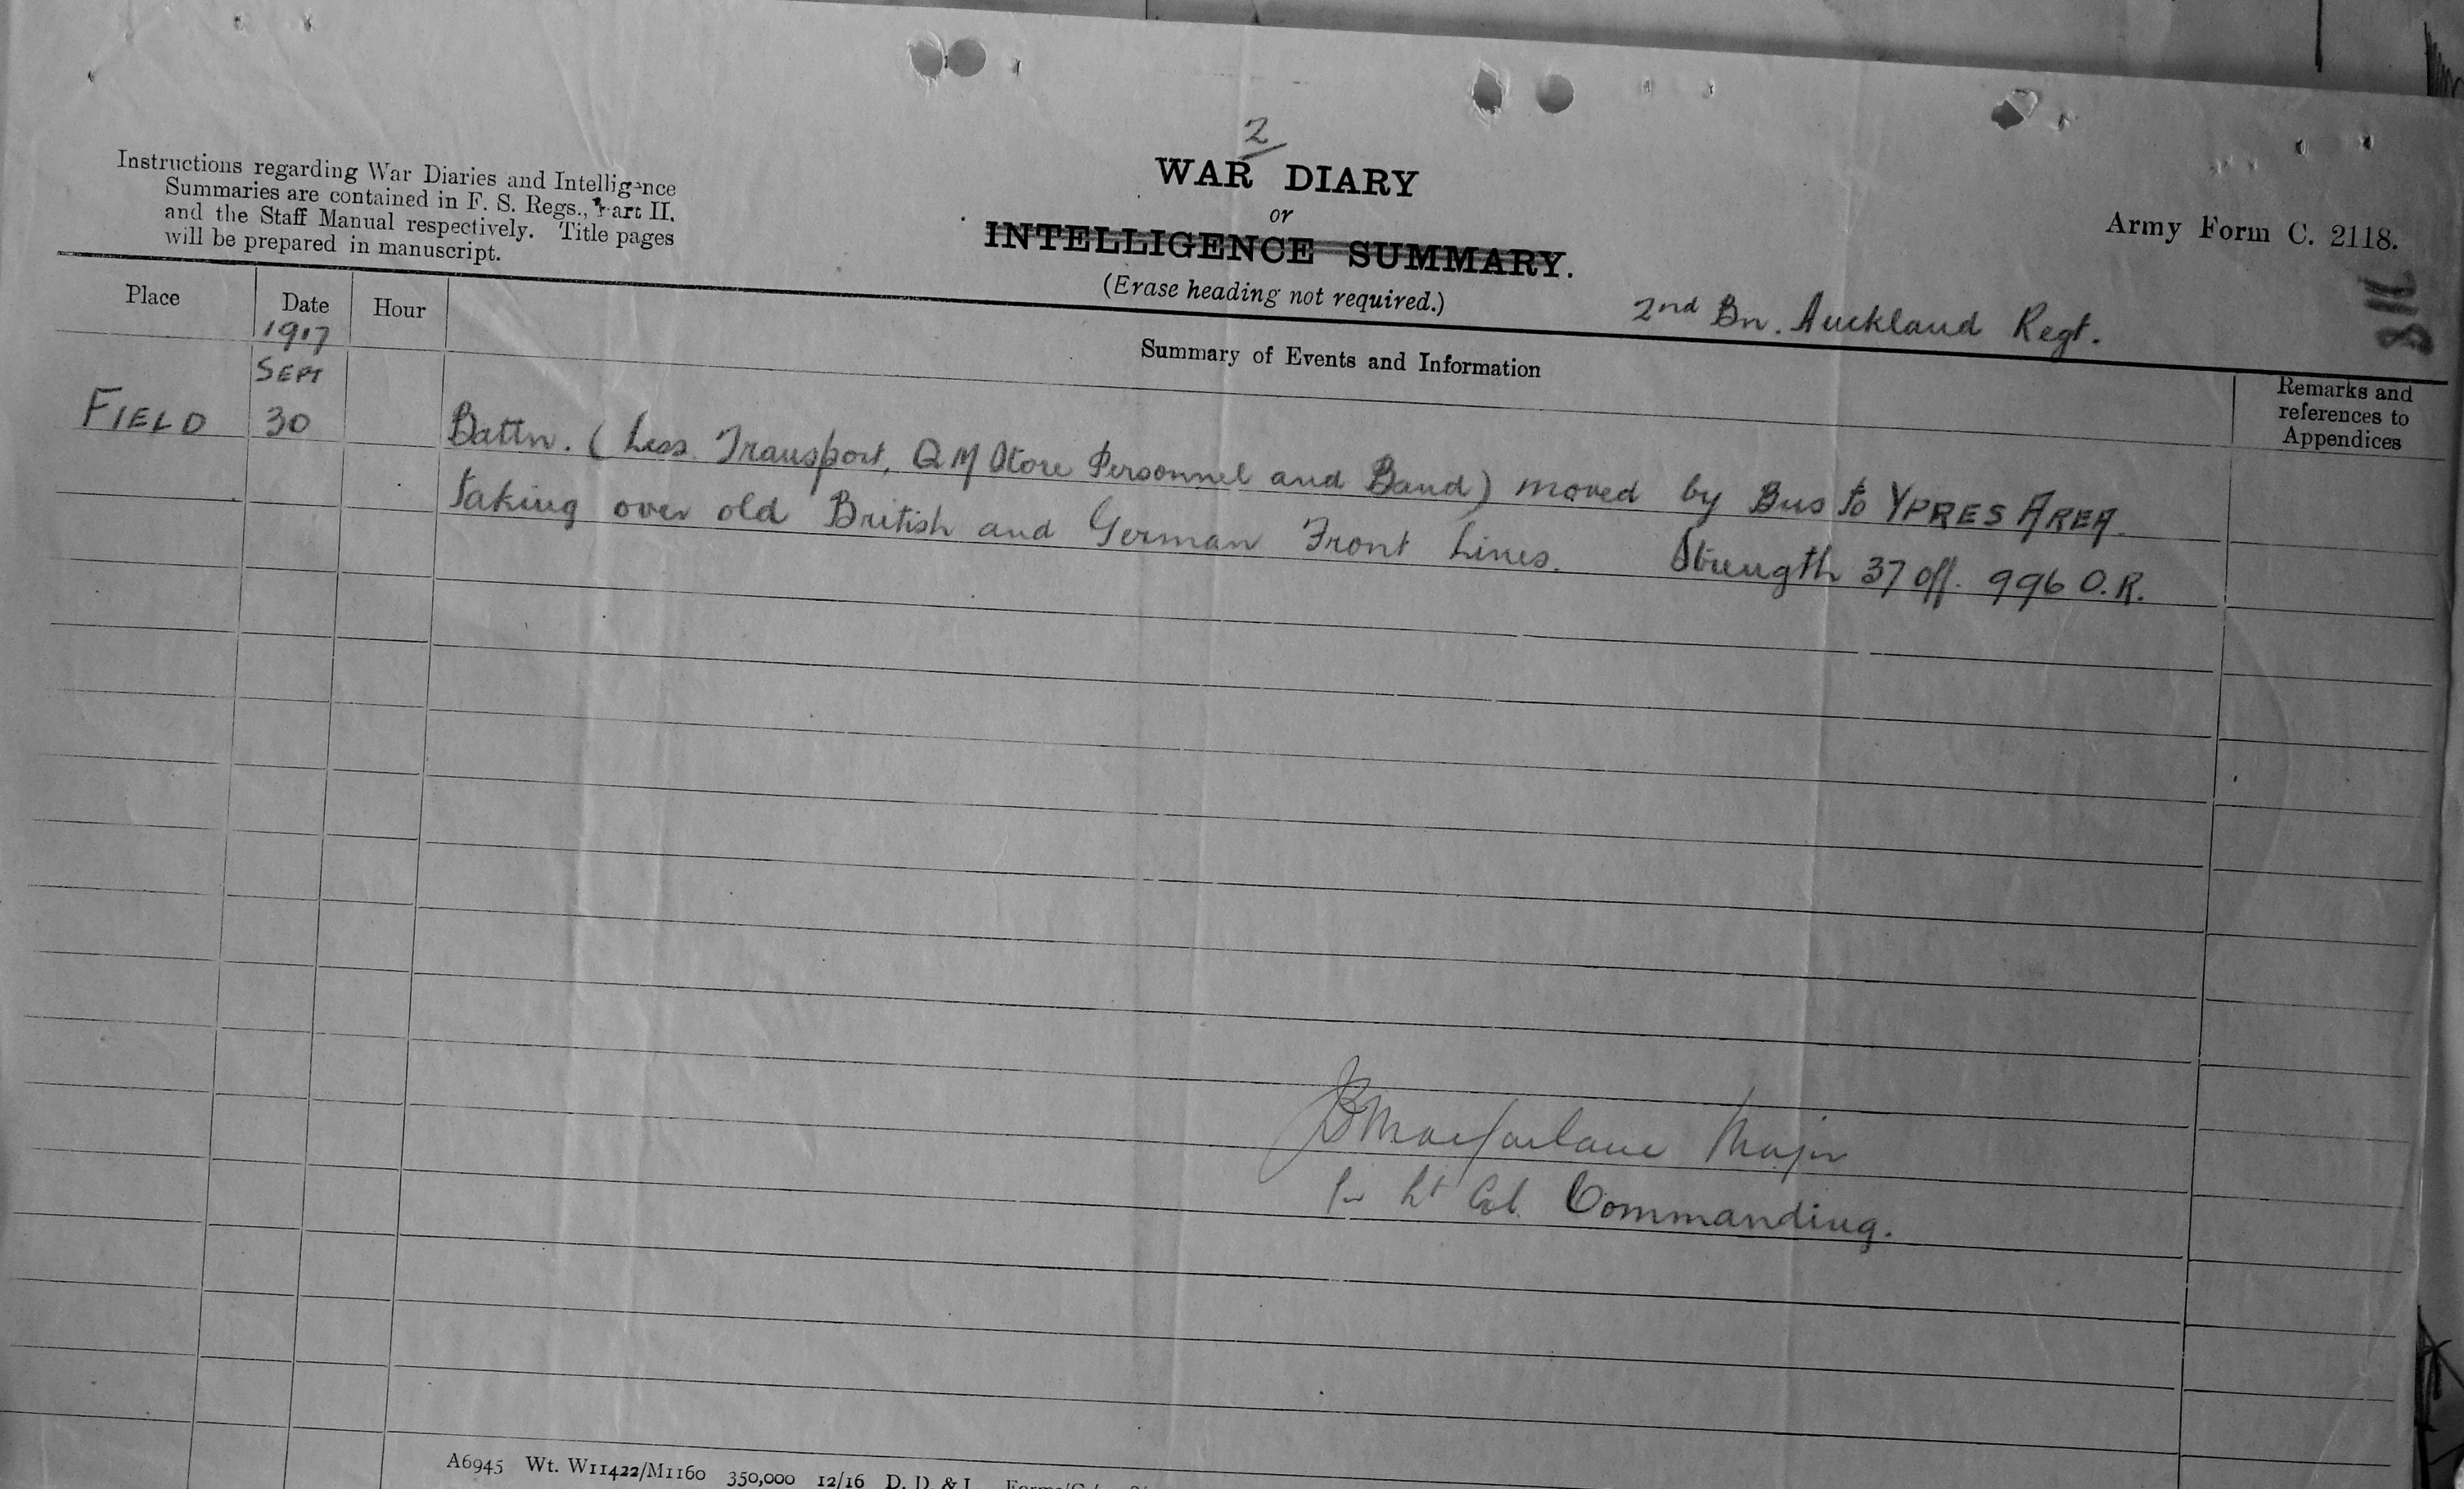 2
WAR DIARY
or
INTELLIGENCE SUMMARY.
(Erase heading not required.)
Instructions regarding War Diaries and Intelligence
Summaries are contained in F. S. Regs., Part II.
and the Staff Manual respectively. Title pages
will be prepared in manuscript.
Army Form C. 2118.
2nd Bn. Auckland Regt.
Place
Date
Hour
Summary of Events and Information
Remarks and
references to
Appendices
1917
SEPT
FIELD 30 Battn. (Less Transport, QM Store Personnel and Band) moved by Bus to YPRES AREA.
taking over old British and German Front Lines. Strength 37 off. 996 O.R.
Macfarlane Major
for Lt Col. Commanding.
A6945 Wt. W11422/M1160 350,000 12/16 D. D. & L.